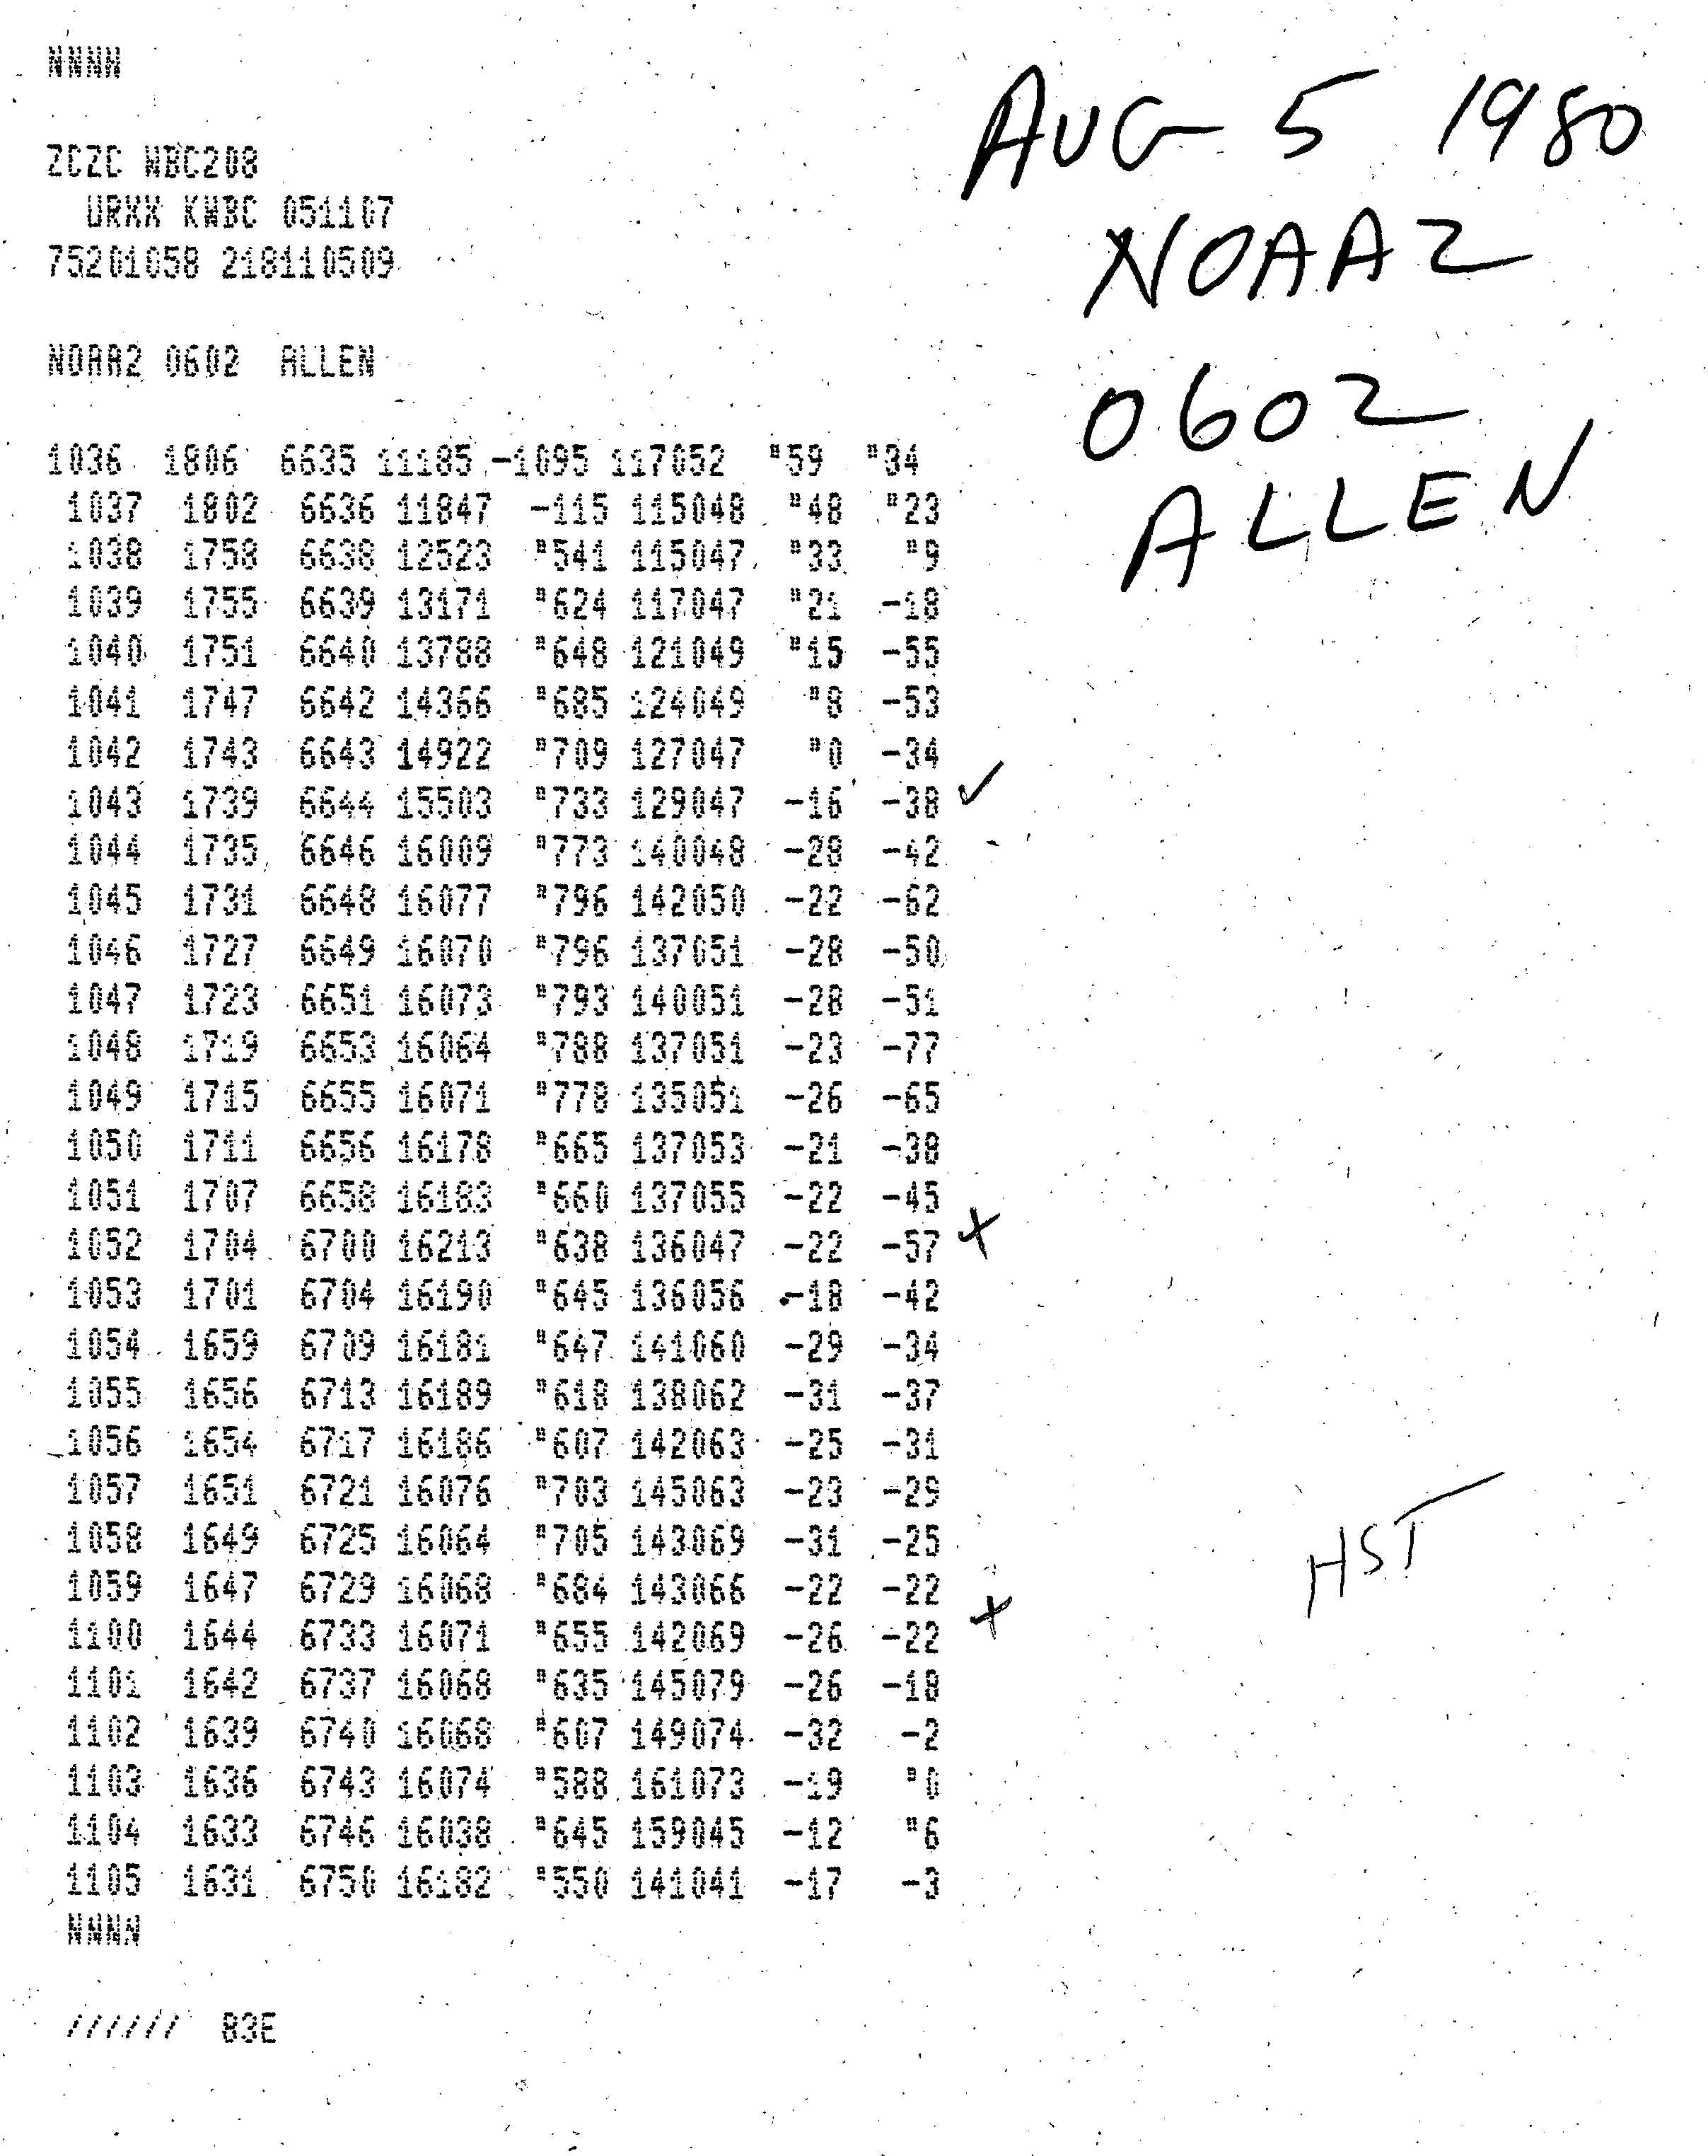 NNNN
AUG 5 1980
ZCZC WBC208
URXX KWBC 051107
75201058 218110509
NOAA2
NOAA2 0602 ALLEN
0602
ALLEN
1036 1806 6635 11185 -1095 117052 "59 "34
1037 1802 6636 11847 -115 115048 "48 "23
1038 1758 6638 12523 "541 115047 "33 "9
1039 1755 6639 13171 "624 117047 "21 -18
1040 1751 6640 13788 "648 121049 "15 -55
1041 1747 6642 14366 "685 124049 "8 -53
1042 1743 6643 14922 "709 127047 "0 -34
1043 1739 6644 15503 "733 129047 -16 -38 ✓
1044 1735 6646 16009 "773 140048 -28 -42
1045 1731 6648 16077 "796 142050 -22 -62
1046 1727 6649 16070 "796 137051 -28 -50
1047 1723 6651 16073 "793 140051 -28 -51
1048 1719 6653 16064 "788 137051 -23 -77
1049 1715 6655 16071 "778 135051 -26 -65
1050 1711 6656 16178 "665 137053 -21 -38
1051 1707 6658 16183 "660 137055 -22 -45
1052 1704 6700 16213 "638 136047 -22 -57 x
1053 1701 6704 16190 "645 136056 -18 -42
1054 1659 6709 16181 "647 141060 -29 -34
1055 1656 6713 16189 "618 138062 -31 -37
1056 1654 6717 16186 "607 142063 -25 -31
1057 1651 6721 16076 "703 145063 -23 -29
1058 1649 6725 16064 "705 143069 -31 -25
HST
1059 1647 6729 16068 "684 143066 -22 -22
1100 1644 6733 16071 "655 142069 -26 -22 x
1101 1642 6737 16068 "635 145079 -26 -18
1102 1639 6740 16068 "607 149074 -32 -2
1103 1636 6743 16074 "588 161073 -19 "0
1104 1633 6746 16038 "645 159045 -12 "6
1105 1631 6750 16182 "550 141041 -17 -3
NNNN
////// 83E